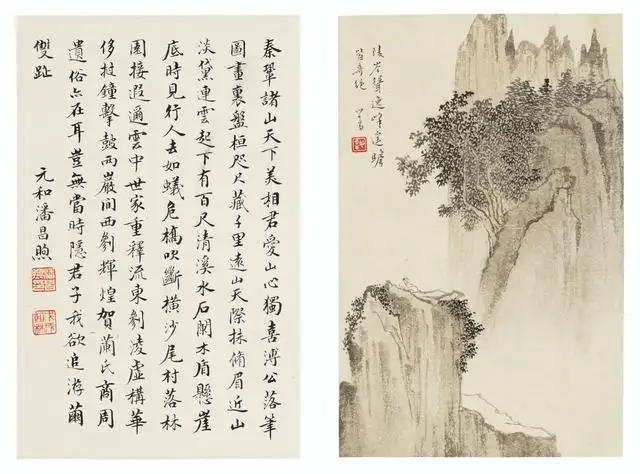 秦鞏諸山天下美相君愛山心獨喜溥公落筆
圖畫裏盤桓咫尺藏千里遠山天際抹脩眉近山
淡黛連雲起下有百尺清溪水石闌木盾懸崖
底時見行人去如蟻危橋吹斷橫沙尾村落林
園接遐邇雲中世家重釋流東剎淩虛構華
侈鐘擊鼓兩巖間西剎輝煌賀蘭氏商周
遺俗在耳豈無當時隱君子我欲追游繭
雙趾
元和潘昌煦
陵岑聳逸峰遙瞻
皆奇絕